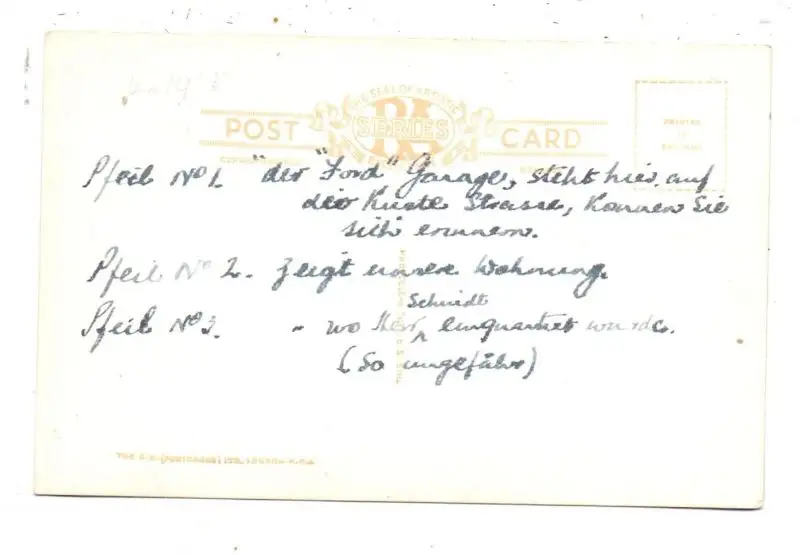 THE SEAL OF ARTISTIC
POST RA SERIES CARD
PRINTED
IN
ENGLAND
Pfeil No 1. "der "Ford" Garage, steht hier auf
der Küste Strasse, können Sie
sich erinnern.
Pfeil No 2. Zeigt unsere Wohnung.
Schmidt
Pfeil No 3. - wo Herr ^ einquartiert wurde.
(So ungefähr)
THE R.A. (POSTCARDS) LTD., LONDON